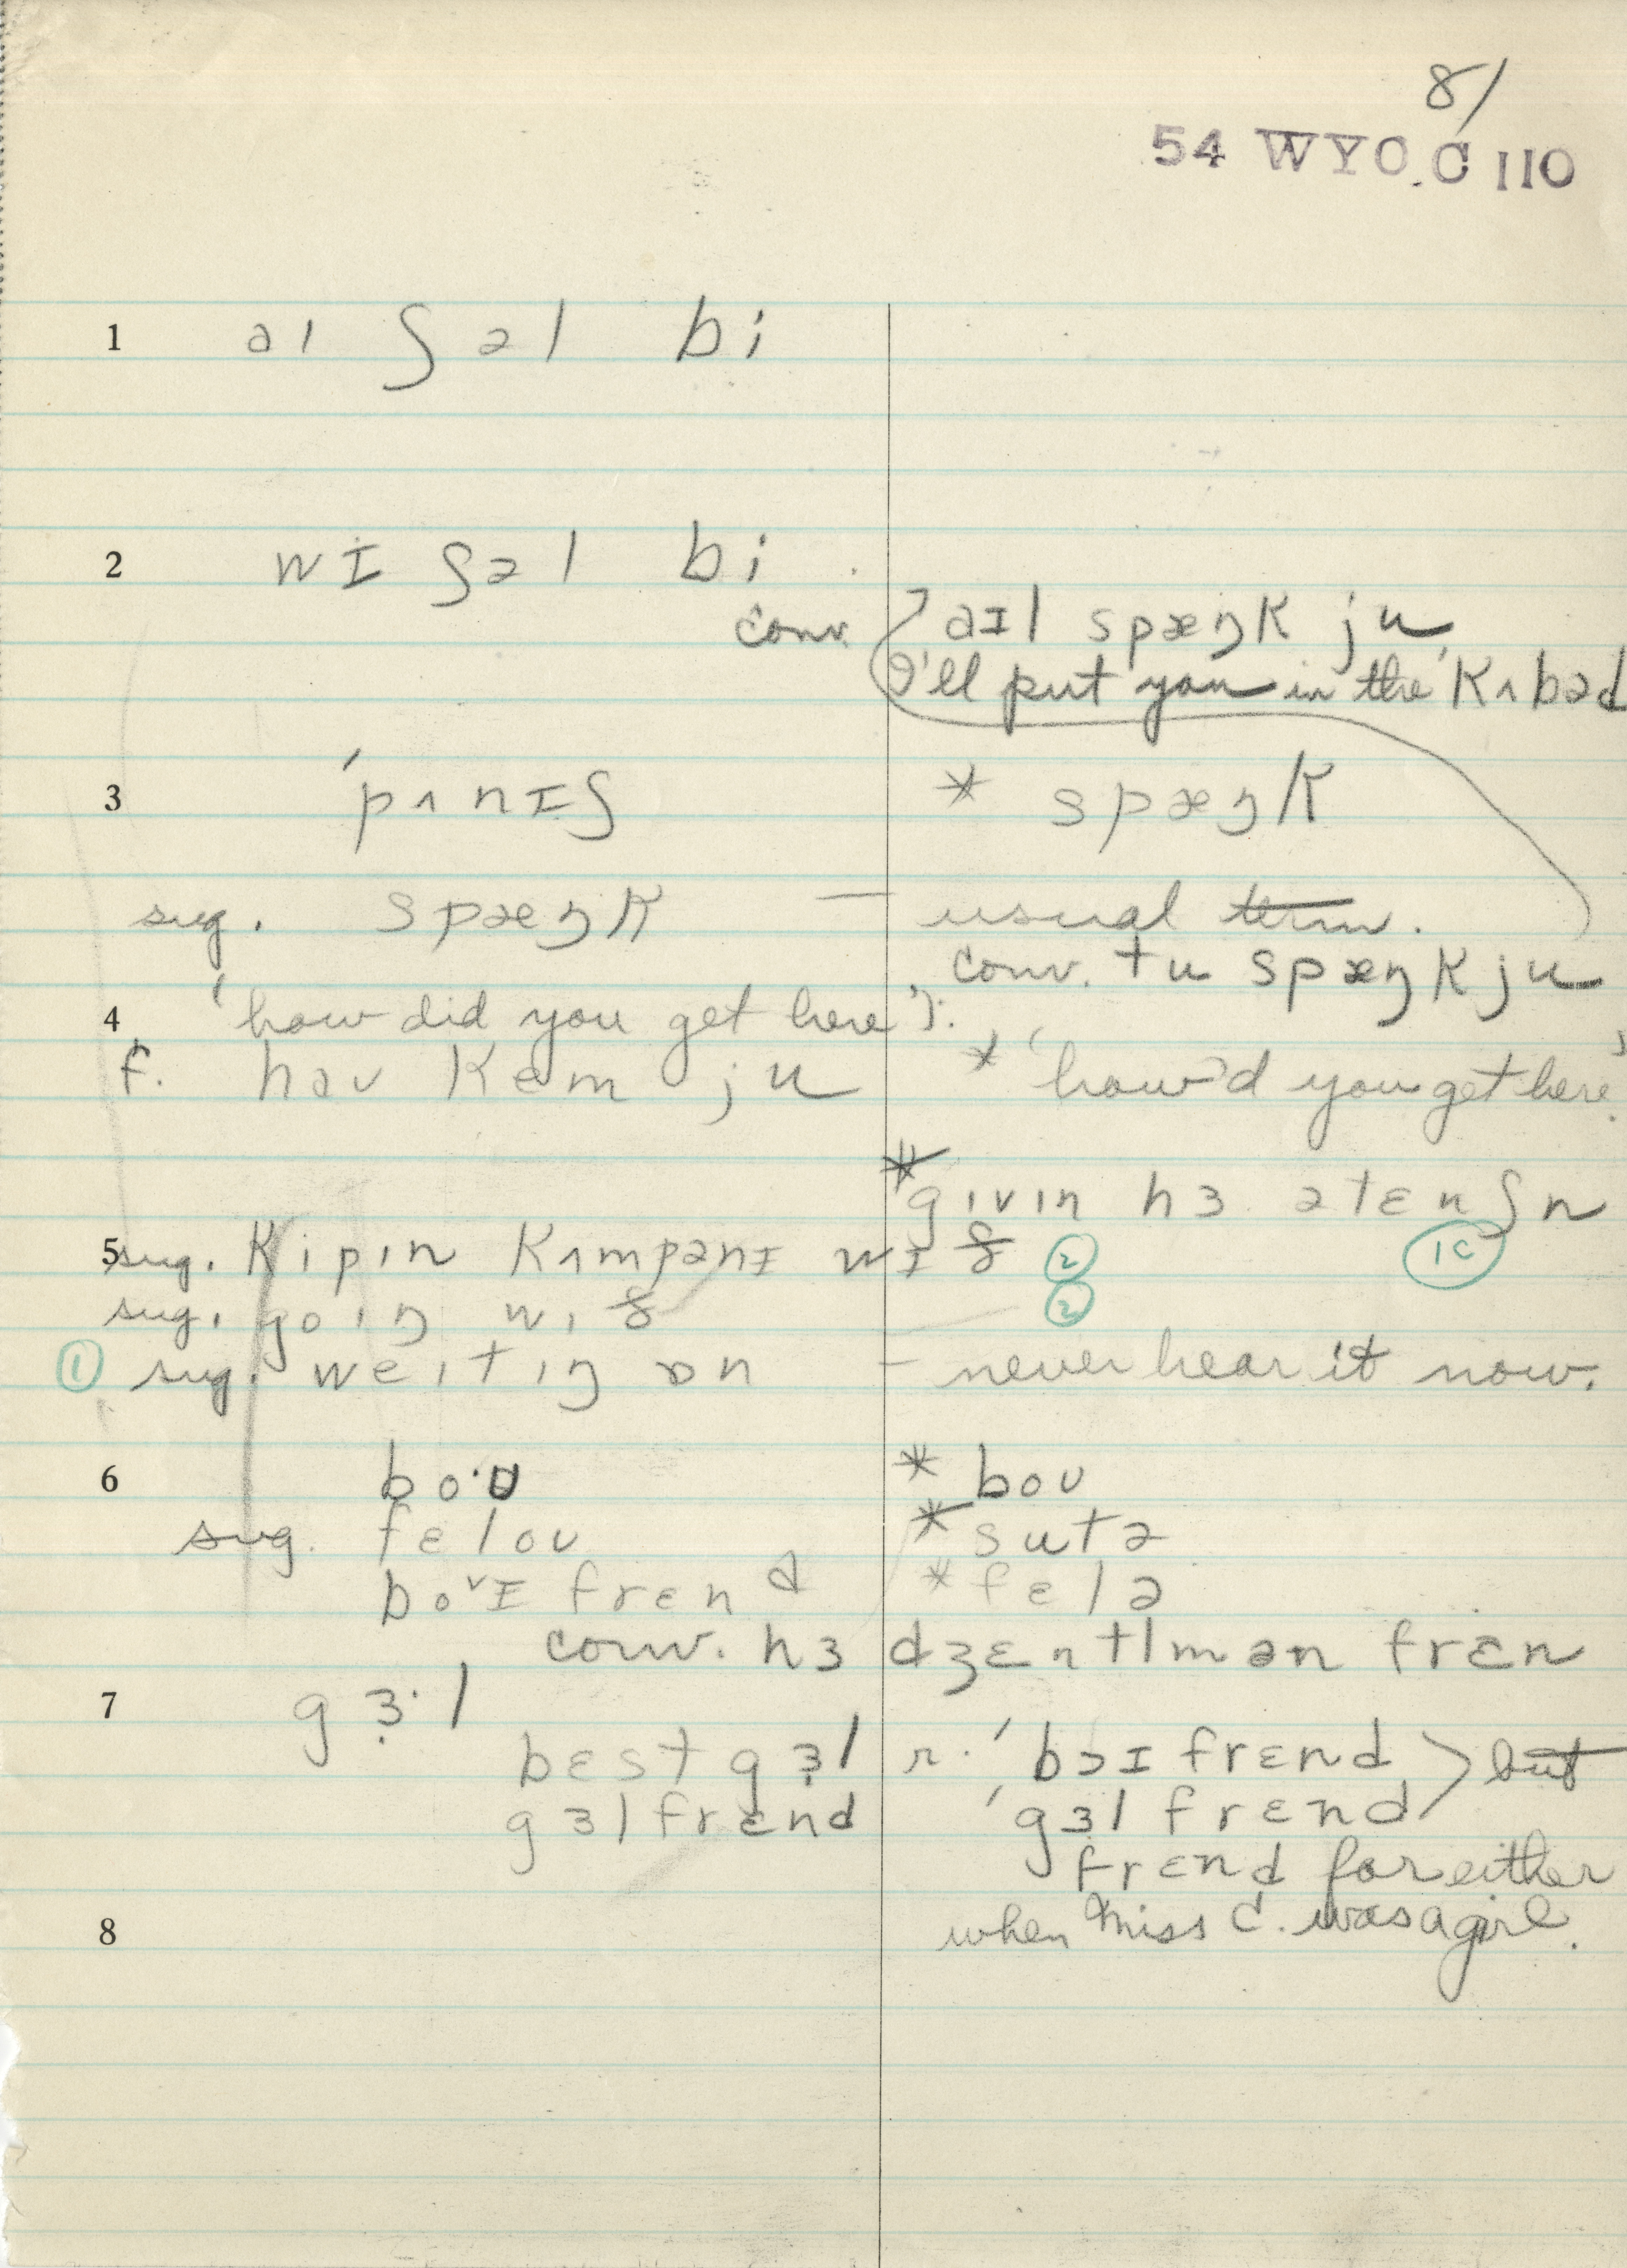 8/
54 WYO. C 110
1 aɪ ʃəl bi
2 wɪ ʃəl bi
conv. aɪl spæŋk ju
I'll put you in the 'kʌbəd
3 'pʌnɪʃ * spæŋk
sug. spæŋk — usual term.
conv. tu spæŋk ju
4 'how did you get here'?:
f. haʊ kem ju * 'how'd you get here'?
* gɪvɪn hɜ ətɛnʃn
5 sug. kipɪn kʌmpənɪ wɪð ② 1C
sug. goɪŋ wɪð ②
① sug. weɪtɪŋ ɒn — never hear it now.
6 bo·ʊ * boʊ
sug. fɛloʊ * sutə
bɔˇɪ frɛnd * fɛlə
conv. hɜ dʒɛntlmən frɛn
7 gɜ·l
bɛst gɜl r. 'bɔɪ frɛnd > but
gɜl frɛnd 'gɜl frɛnd
frɛnd for either
8 when Miss C. was a girl.